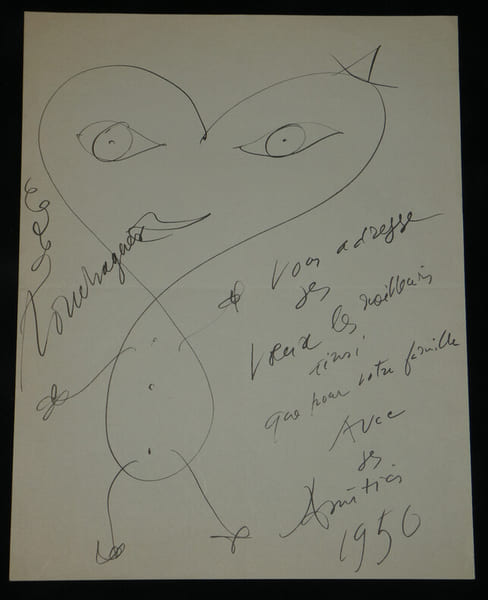 Touchagues
Vous adresse
ses
Vœux les meilleurs
ainsi
que pour votre famille
Avec
ses
Amitiés
1950